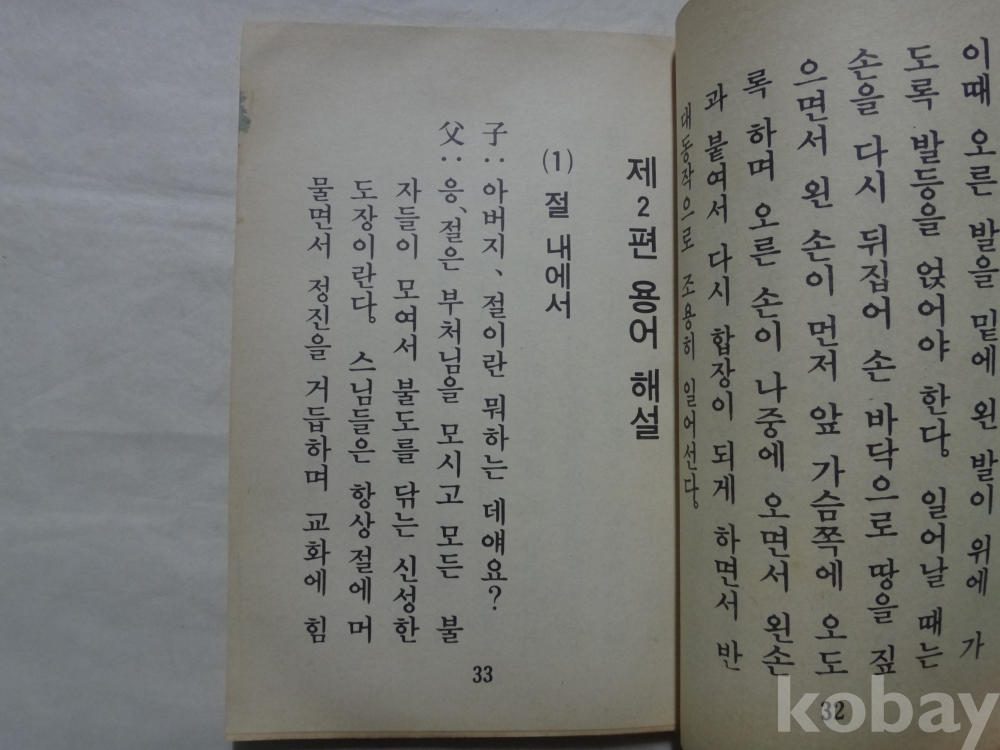 이때 오른 발을 밑에 왼 발이 위에 가
도록 발등을 얹어야 한다. 일어날 때는
손을 다시 뒤집어 손 바닥으로 땅을 짚
으면서 왼 손이 먼저 앞 가슴쪽에 오도
록 하며 오른 손이 나중에 오면서 왼손
과 붙여서 다시 합장이 되게 하면서 반
대동작으로 조용히 일어선다.
32
제 2 편 용어 해설
(1) 절 내에서
子: 아버지、절이란 뭐하는 데얘요?
父: 응、절은 부처님을 모시고 모든 불
자들이 모여서 불도를 닦는 신성한
도장이란다. 스님들은 항상 절에 머
물면서 정진을 거듭하며 교화에 힘
33
kobay